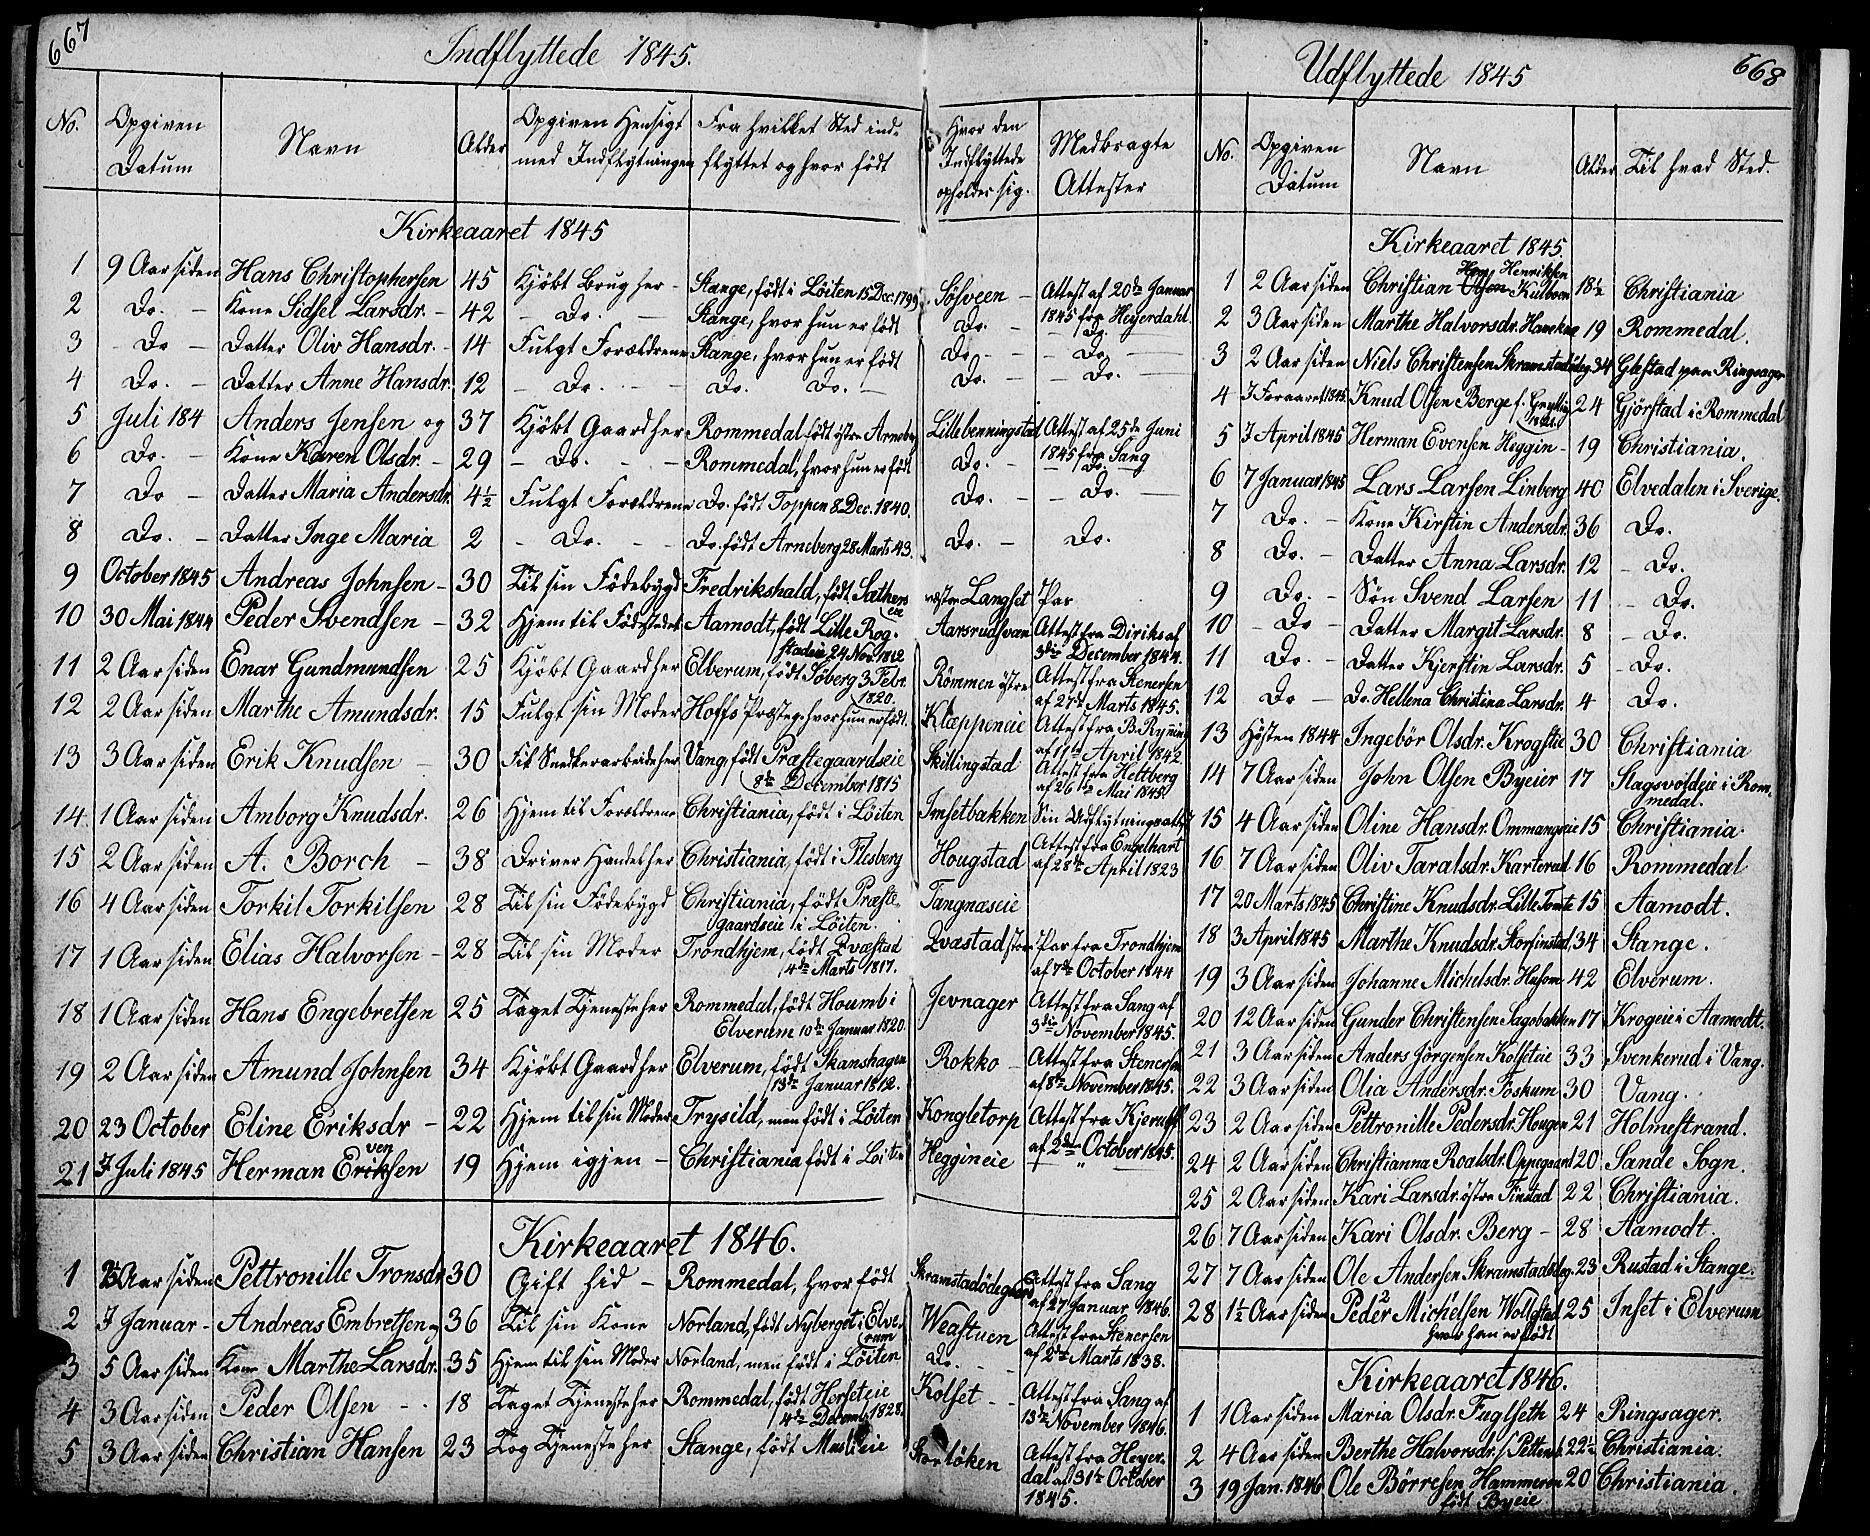 667
Indflyttede 1845.
No. | Opgiven Datum | Navn | Alder | Opgiven Hensigt med Indflytningen | Fra hvilket Sted indflyttet og hvor född | Hvor den Indflyttede opholder sig. | Medbragte Attester
Kirkeaaret 1845
1 9 Aar siden Hans Christophersen 45 Kjöbt Brug her - Stange, född i Löiten 15 Dec. 1799 Sösveen - Attest af 20de Januar 1845 fra Heyerdahl.
2 Do. - Kone Sidsel Larsdr. - 42 - Do. - Stange, hvor hun er född Do. - Do.
3 - Do - Datter Oliv Hansdr. - 14 Fulgt Forældrene Stange, hvor hun er född Do. - - Do. -
4 Do. - Datter Anne Hansdr. 12 - Do. - - Do. Do. - Do. - - Do. -
5 Juli 184 Anders Jensen og 37 Kjöbt Gaard her Rommedal född östre Arneberg Lillebenningstad Attest af 25de Juni 1845 fra Sang
6 Do. - Kone Karen Olsdr. - 29 - Do. - - Rommedal, hvor hun er född Do. - - Do. -
7 Do - Datter Maria Andersdr. 4½ Fulgt Forældrene Do. född Toppen 8 Dec. 1840. Do. - - Do. -
8 Do. - Datter Inge Maria 2 - Do. - Do. född Arneberg 28 Marts 43. Do. - Do.
9 October 1845 Andreas Johnsen - 30 Til sin Födebygd Fredrikshald, född Sæthers eie vestre Langset Pas
10 30 Mai 1844 Peder Svendsen - 32 Hjem til Födestedet Aamodt, född Lille Rogstadeie 24 Nov. 1812 Aarsrudsveen Attest fra Diriks af 3die December 1844.
11 2 Aar siden Enar Gundmundsen 25 Kjöbt Gaard her Elverum, född Söberg 3 Febr. 1820. Römmen östre Attest fra Stenersen af 27de Marts 1845.
12 2 Aar siden Marthe Amundsdr. 15 Fulgt sin Moder Hoffs Præsteg. hvor hun er född. Klæppeneie Attest fra B. Ry af 11te April 1842
13 3 Aar siden Erik Knudsen - 30 Til Snedkerarbeide her Vang, född Præstegaardseie 8de December 1815 Skillingstad Attest fra Heltberg af 26de Mai 1845.
14. 1 Aar siden Amborg Knudsdr. 26 Hjem til Forældrene Christiania, född i Löiten Imsetbakken Sin Udflytningsattest
15 2 Aar siden A. Borch - 38 Driver Handel her Christiania, född i Flesberg Hougstad Attest fra Engelhart af 28de April 1823
16 4 Aar siden Torkil Torkilsen 28 Til sin Födebygd Christiania, född Præstegaardseie i Löiten. Tangnæseie
17 1 Aar siden Elias Halvorsen - 28 Til sin Moder Trondhjem, född Qvæstad 4de Marts 1817. Qvæstad store Pas fra Trondhjem af 7de October 1844
18 1 Aar siden Hans Engebretsen 25 Taget Tjeneste her Rommedal, född Houmb i Elverum 10de Januar 1820. Jevnager Attest fra Sang af 3die November 1845.
19 2 Aar siden Amund Johnsen 34 Kjöbt Gaard her Elverum, född Skanshagen 13de Januar 1812. Rokko - Attest fra Stenersen af 8de November 1845.
20 23 October Eline Eriksdr - 22 Hjem til sin Moder Trysild, men född i Löiten Kongletorp Attest fra Kjerulff af 2den October 1845.
21 7 Juli 1845 Herman Eriksen ven 19 Hjem igjen - Christiania född i Löiten Heggineie - " -
Kirkeaaret 1846.
1 Aar siden Pettronille Tronsdr. 30 Gift hid - Rommedal, hvor född Skramstadödegaard Attest fra Sang af 27 Januar 1846.
2 7 Januar - Andreas Embretsen og 36 Til sin Kone Norland, född Nyberget i Elverum Weastuen Attest fra Stenersen af 2den Marts 1838.
3 5 Aar siden Kone Marthe Larsdr. 35 Hjem til sin Moder Norland, men född i Löiten Do. -
4 3 Aar siden Peder Olsen - - 18 Taget Tjeneste her Rommedal, född Horseteie 4de Decemb. 1828. Kolset - - Attest fra Sang af 13de November 1846.
5 3 Aar siden Christian Hansen 23 Tog Tjeneste her Stange, född eie Storlöken Attest fra Heyerdal af 31te October 1845.
668
Udflyttede 1845
No. | Opgiven Datum | Navn | Alder | Til hvad Sted.
Kirkeaaret 1845.
1 2 Aar siden Christian Olsen Henriksen Kulbven 18½ Christiania
2 3 Aar siden Marthe Halvorsdr. 19 Rommedal.
3 2 Aar siden Niels Christensen Skramstadödeg. 34 Glæstad paa Ringsager
4 Foraaret 1845. Knud Olsen Berge 24 Gjörstad i Rommedal
5 7 April 1845 Herman Evensen Heggin - 19 Christiania.
6 7 Januar 1845 Lars Larsen Linberg 40 Elvedalen i Sverige.
7 Do. - Kone Kirstin Andersdr. 36 Do.
8 Do. - Datter Anna Larsdr. 12 - Do.
9 Do. - Sön Svend Larsen 11 - Do.
10 - Do - Datter Margit Larsdr. 8 - Do.
11 Do. - Datter Kjerstin Larsdr. 5 - Do.
12 Do - Do. Hellena Christina Larsdr. 4 Do.
13 Hösten 1844 Ingebör Olsdr. Krogstie 30 Christiania
14 7 Aar siden John Olsen Byeier 17 Stagsvoldeie i Rommedal.
15 4 Aar siden Oline Hansdr. Ommangseie 15 Christiania.
16 7 Aar siden Oliv Taralsdr. Karterud 16 Rommedal
17 20 Marts 1845 Christine Knudsdr. Lille Tomte 15 Aamodt.
18 3 April 1845 Marthe Knudsdr. Storfinstad 34 Stange.
19 3 Aar siden Johanne Michelsdr. Husom 42 Elverum.
20 12 Aar siden Gunder Christensen Sagobakken 17 Krogeie i Aamodt.
21 3 Aar siden Anders Jörgensen Kolseteie 33 Svenkerud i Vang.
22 3 Aar siden Olia Andersdr. Foskum 30 Vang.
23 2 Aar siden Pettronille Pedersdr. Hougen 21 Holmestrand.
24 2 Aar siden Christianna Roalsdr. Oppegaard 20 Sande Sogn.
25 2 Aar siden Kari Larsdr. östre Finstad 22 Christiania.
26 7 Aar siden Kari Olsdr. Berg - 28 Aamodt.
27 7 Aar siden Ole Andersen Skramstadödeg. 23 Rustad i Stange.
28 1½ Aar siden Peder Michelsen Wollstad hvor han er född 25 Inset i Elverum
Kirkeaaret 1846.
1 1 Aar siden Maria Olsdr. Fuglseth 24 Ringsager.
2 4 Aar siden Berthe Halvorsdr. 22½ Christiania.
3 19 Jan. 1846 Ole Börresen Hammeren född Byeie 20 Christiania.